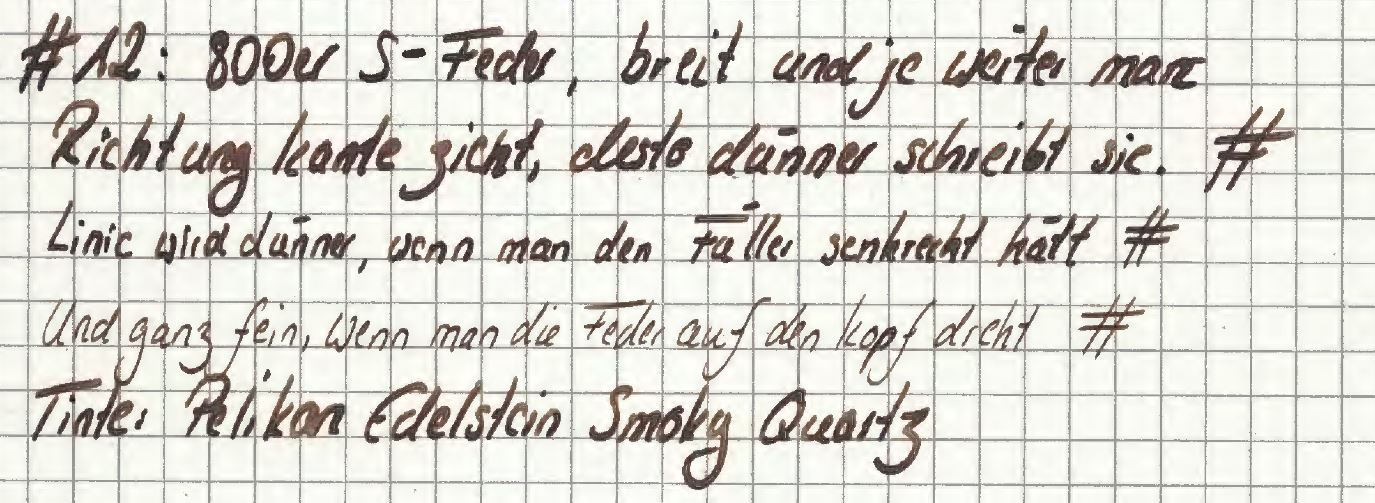 #12: 800er S-Feder, breit und je weiter man
Richtung kante zieht, desto dünner schreibt sie. #
Linie wird dünner, wenn man den Füller senkrecht hält #
Und ganz fein, wenn man die Feder auf den kopf dreht #
Tinte: Pelikan Edelstein Smoky Quartz